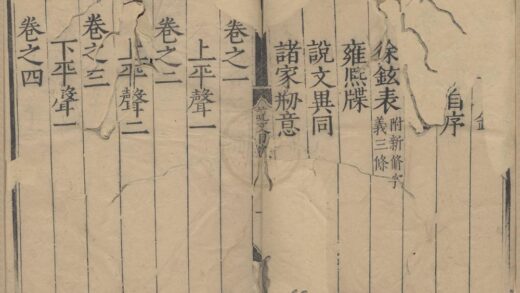 自序
徐鉉表 附新修字
義三條
雍熙牒
說文異同
諸家刱意
卷之一
上平聲一
卷之二
上平聲二
卷之三
下平聲一
卷之四